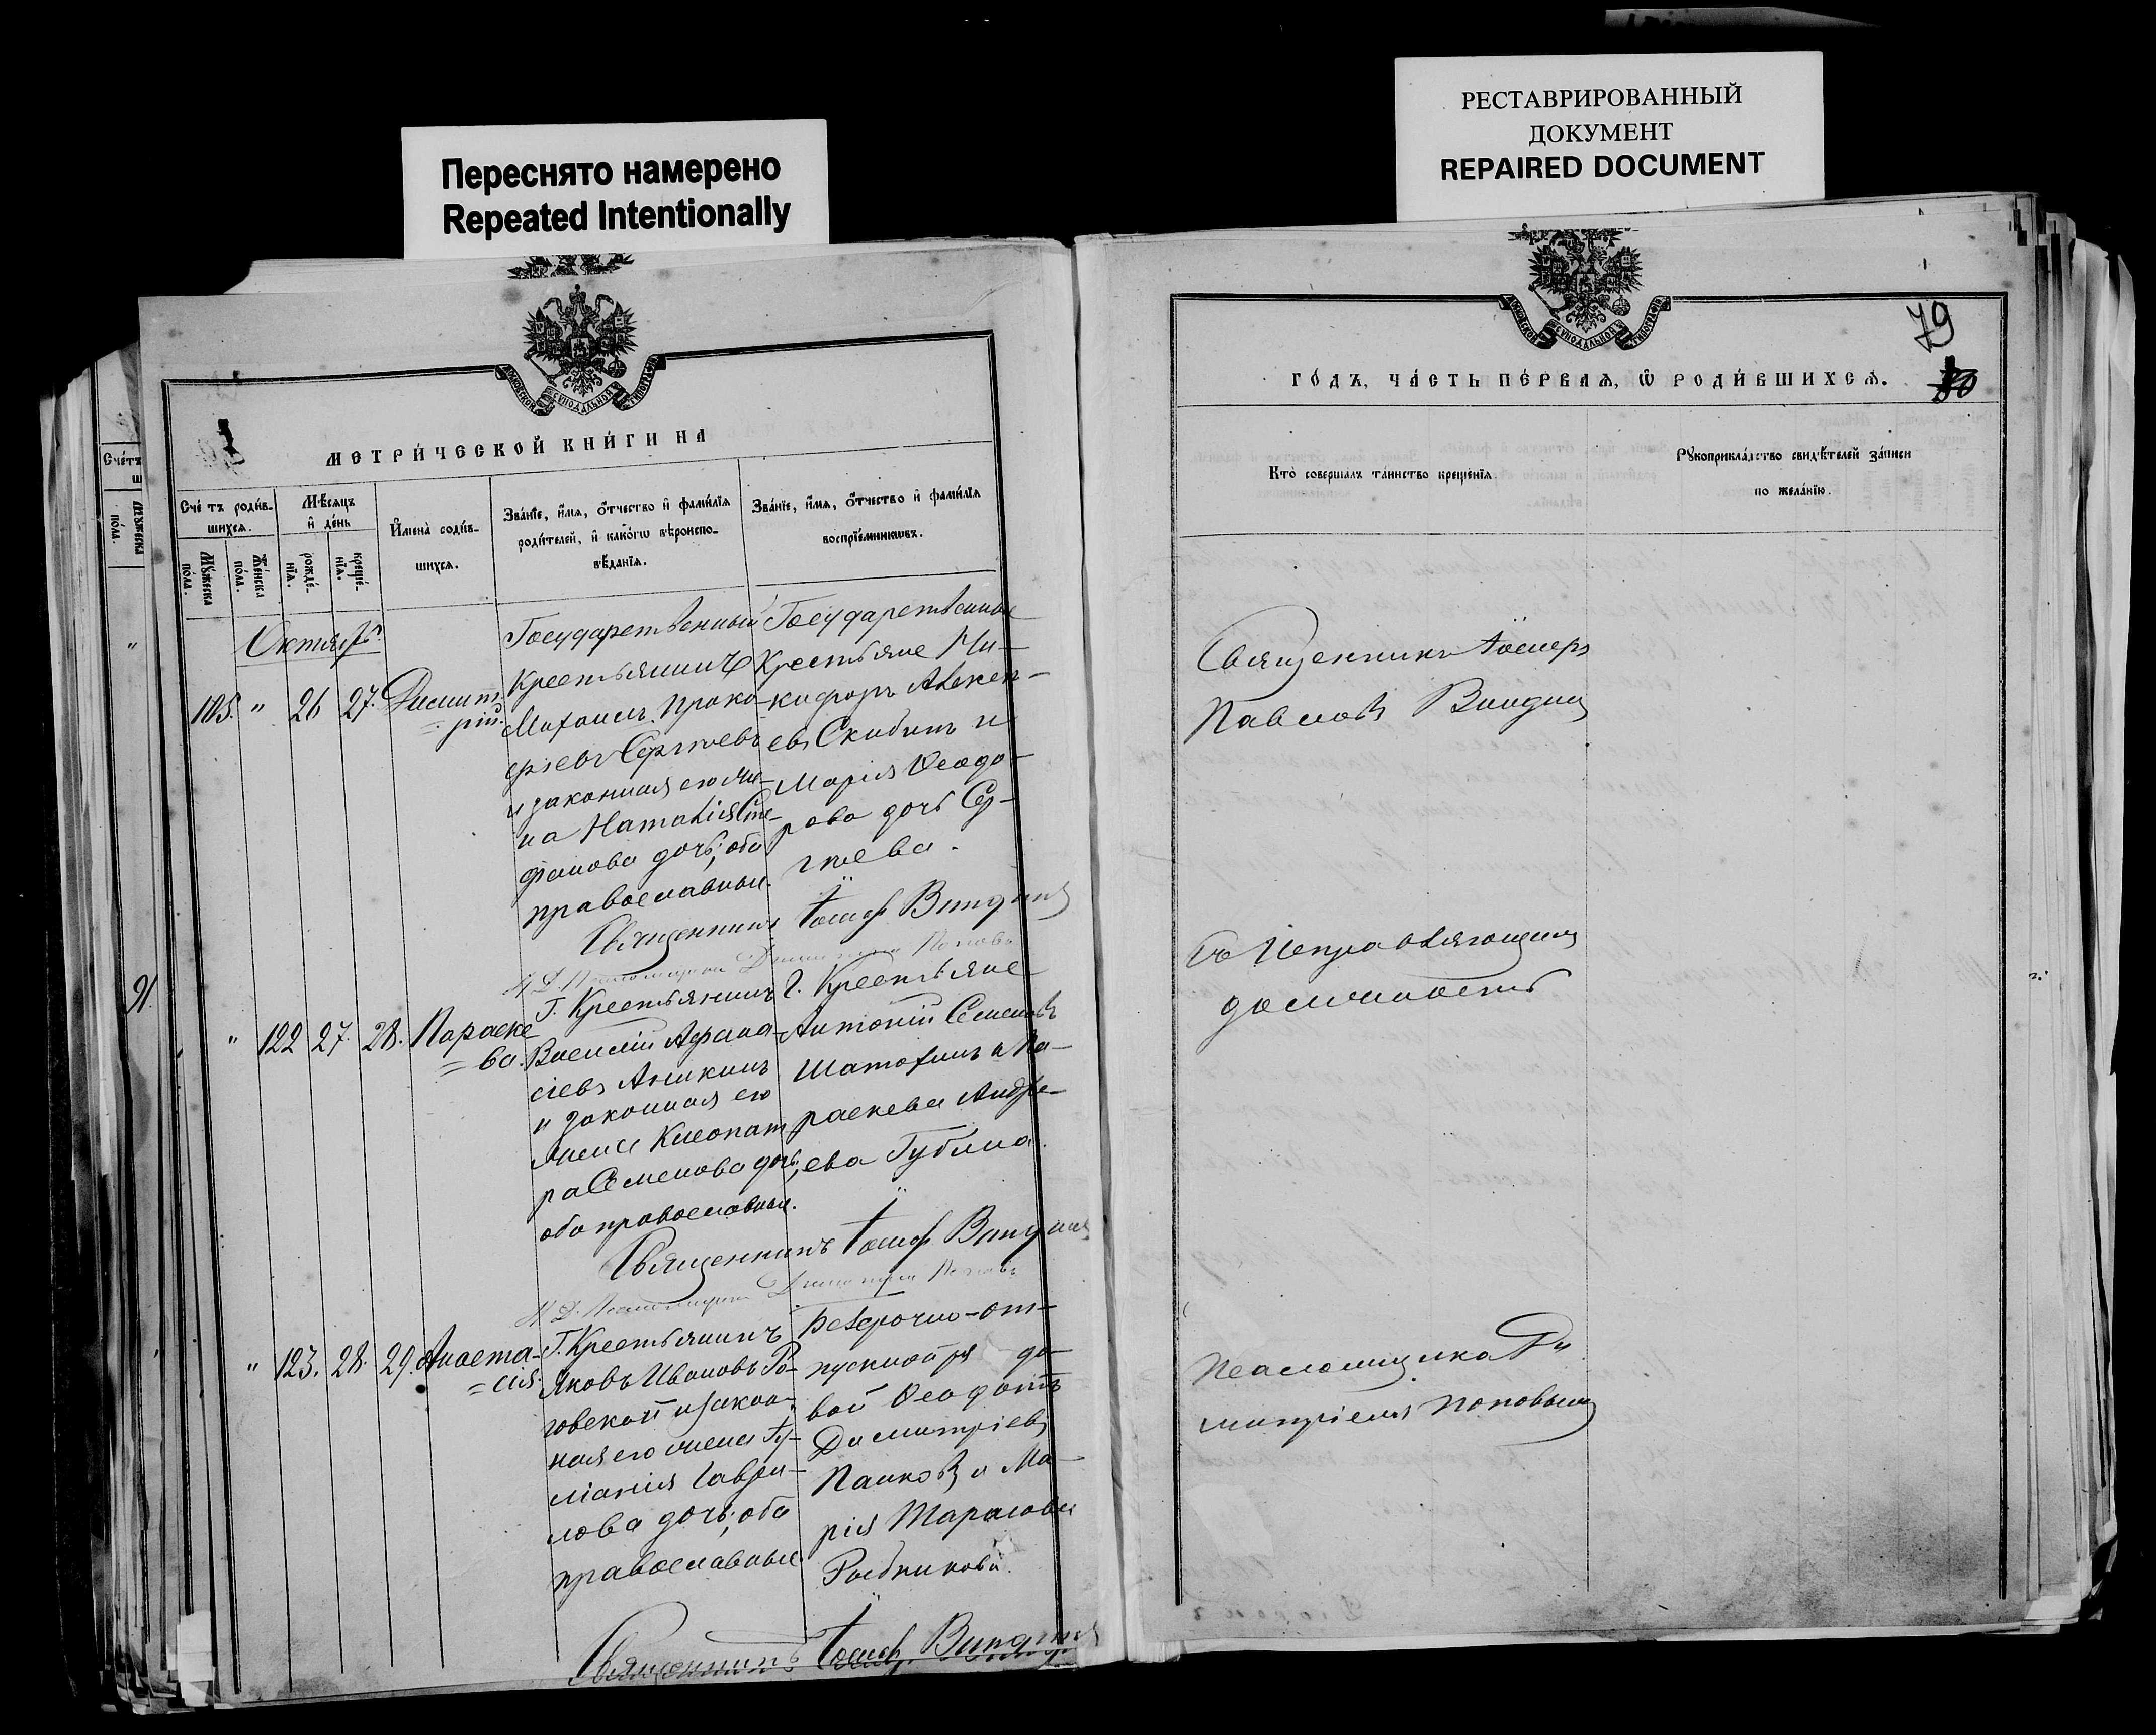 Переснято намерено
Repeated Intentionally
РЕСТАВРИРОВАННЫЙ
ДОКУМЕНТ
REPAIRED DOCUMENT
МЕТРИ́ЧЕСКОЙ КНИ́ГИ НА
Сче́тъ роди́в-
шихсѧ.
Мѣ́сѧцъ
и҆ де́нь
Мꙋ́жеска
по́ла.
Же́нска
по́ла.
рожде́-
нїѧ.
креще́-
нїѧ.
И҆мена̀ роди́в-
шихсѧ.
Зва́нїе, и҆́мѧ, ѻ҆́тчество и҆ фами́лїѧ
роди́телей, и҆ како́гѡ вѣроиспо-
вѣ́данїѧ.
Зва́нїе, и҆́мѧ, ѻ҆́тчество и҆ фами́лїѧ
воспрїе́мникѡвъ.
Октябрь.
105. " 26 27. Димит-
=рій.
Государственный
Крестьянинъ
Михаилъ Проко-
фьевъ Сергѣевъ
и законная его же-
на Наталія Сте-
фанова дочь; оба
православные.
Государственные
Крестьяне Ни-
кифоръ Алексѣ-
евъ Скибинъ и
Марія Ѳеодо-
рова дочь Сер-
гѣева.
Священникъ Іосифъ Виндингъ
И. Д. Псаломщика Димитрій Поповъ
" 122 27. 28. Параске
=ва.
Г. Крестьянинъ
Василій Афана-
сіевъ Аникинъ
и законная его
жена Клеопат
ра Семенова дочь,
оба православные.
Г. Крестьяне
Антоній Семеновъ
Шатохинъ и Па-
раскева Андре-
ева Губина.
Священникъ Іосифъ
И. Д. Псаломщика Димитрій Поповъ
" 123. 28. 29. Анаста-
=сія.
Г. Крестьянинъ
Яковъ Ивановъ Ро-
говской и закон-
ная его жена Іу-
ліанія Гаври-
лова дочь; оба
православные.
Безсрочно-от-
пускной ря до
вой Ѳеодотъ
Димитріевъ
Панковъ и Ма-
рія Тарасова
Рыбникова.
Священникъ Іосифъ
ГО́ДЪ, ЧА́СТЬ ПЕ́РВАѦ, Ѡ РОДИ́ВШИХСѦ.
79
Кто̀ соверша́лъ та́инство креще́нїѧ
Рꙋкоприкла́дство свидѣ́телей за́писи
по жела́нїю.
Священникъ Іосифъ
Павловъ
Съ Исправляющимъ
должность
Псаломщика Ди
митріемъ Поповымъ
91.